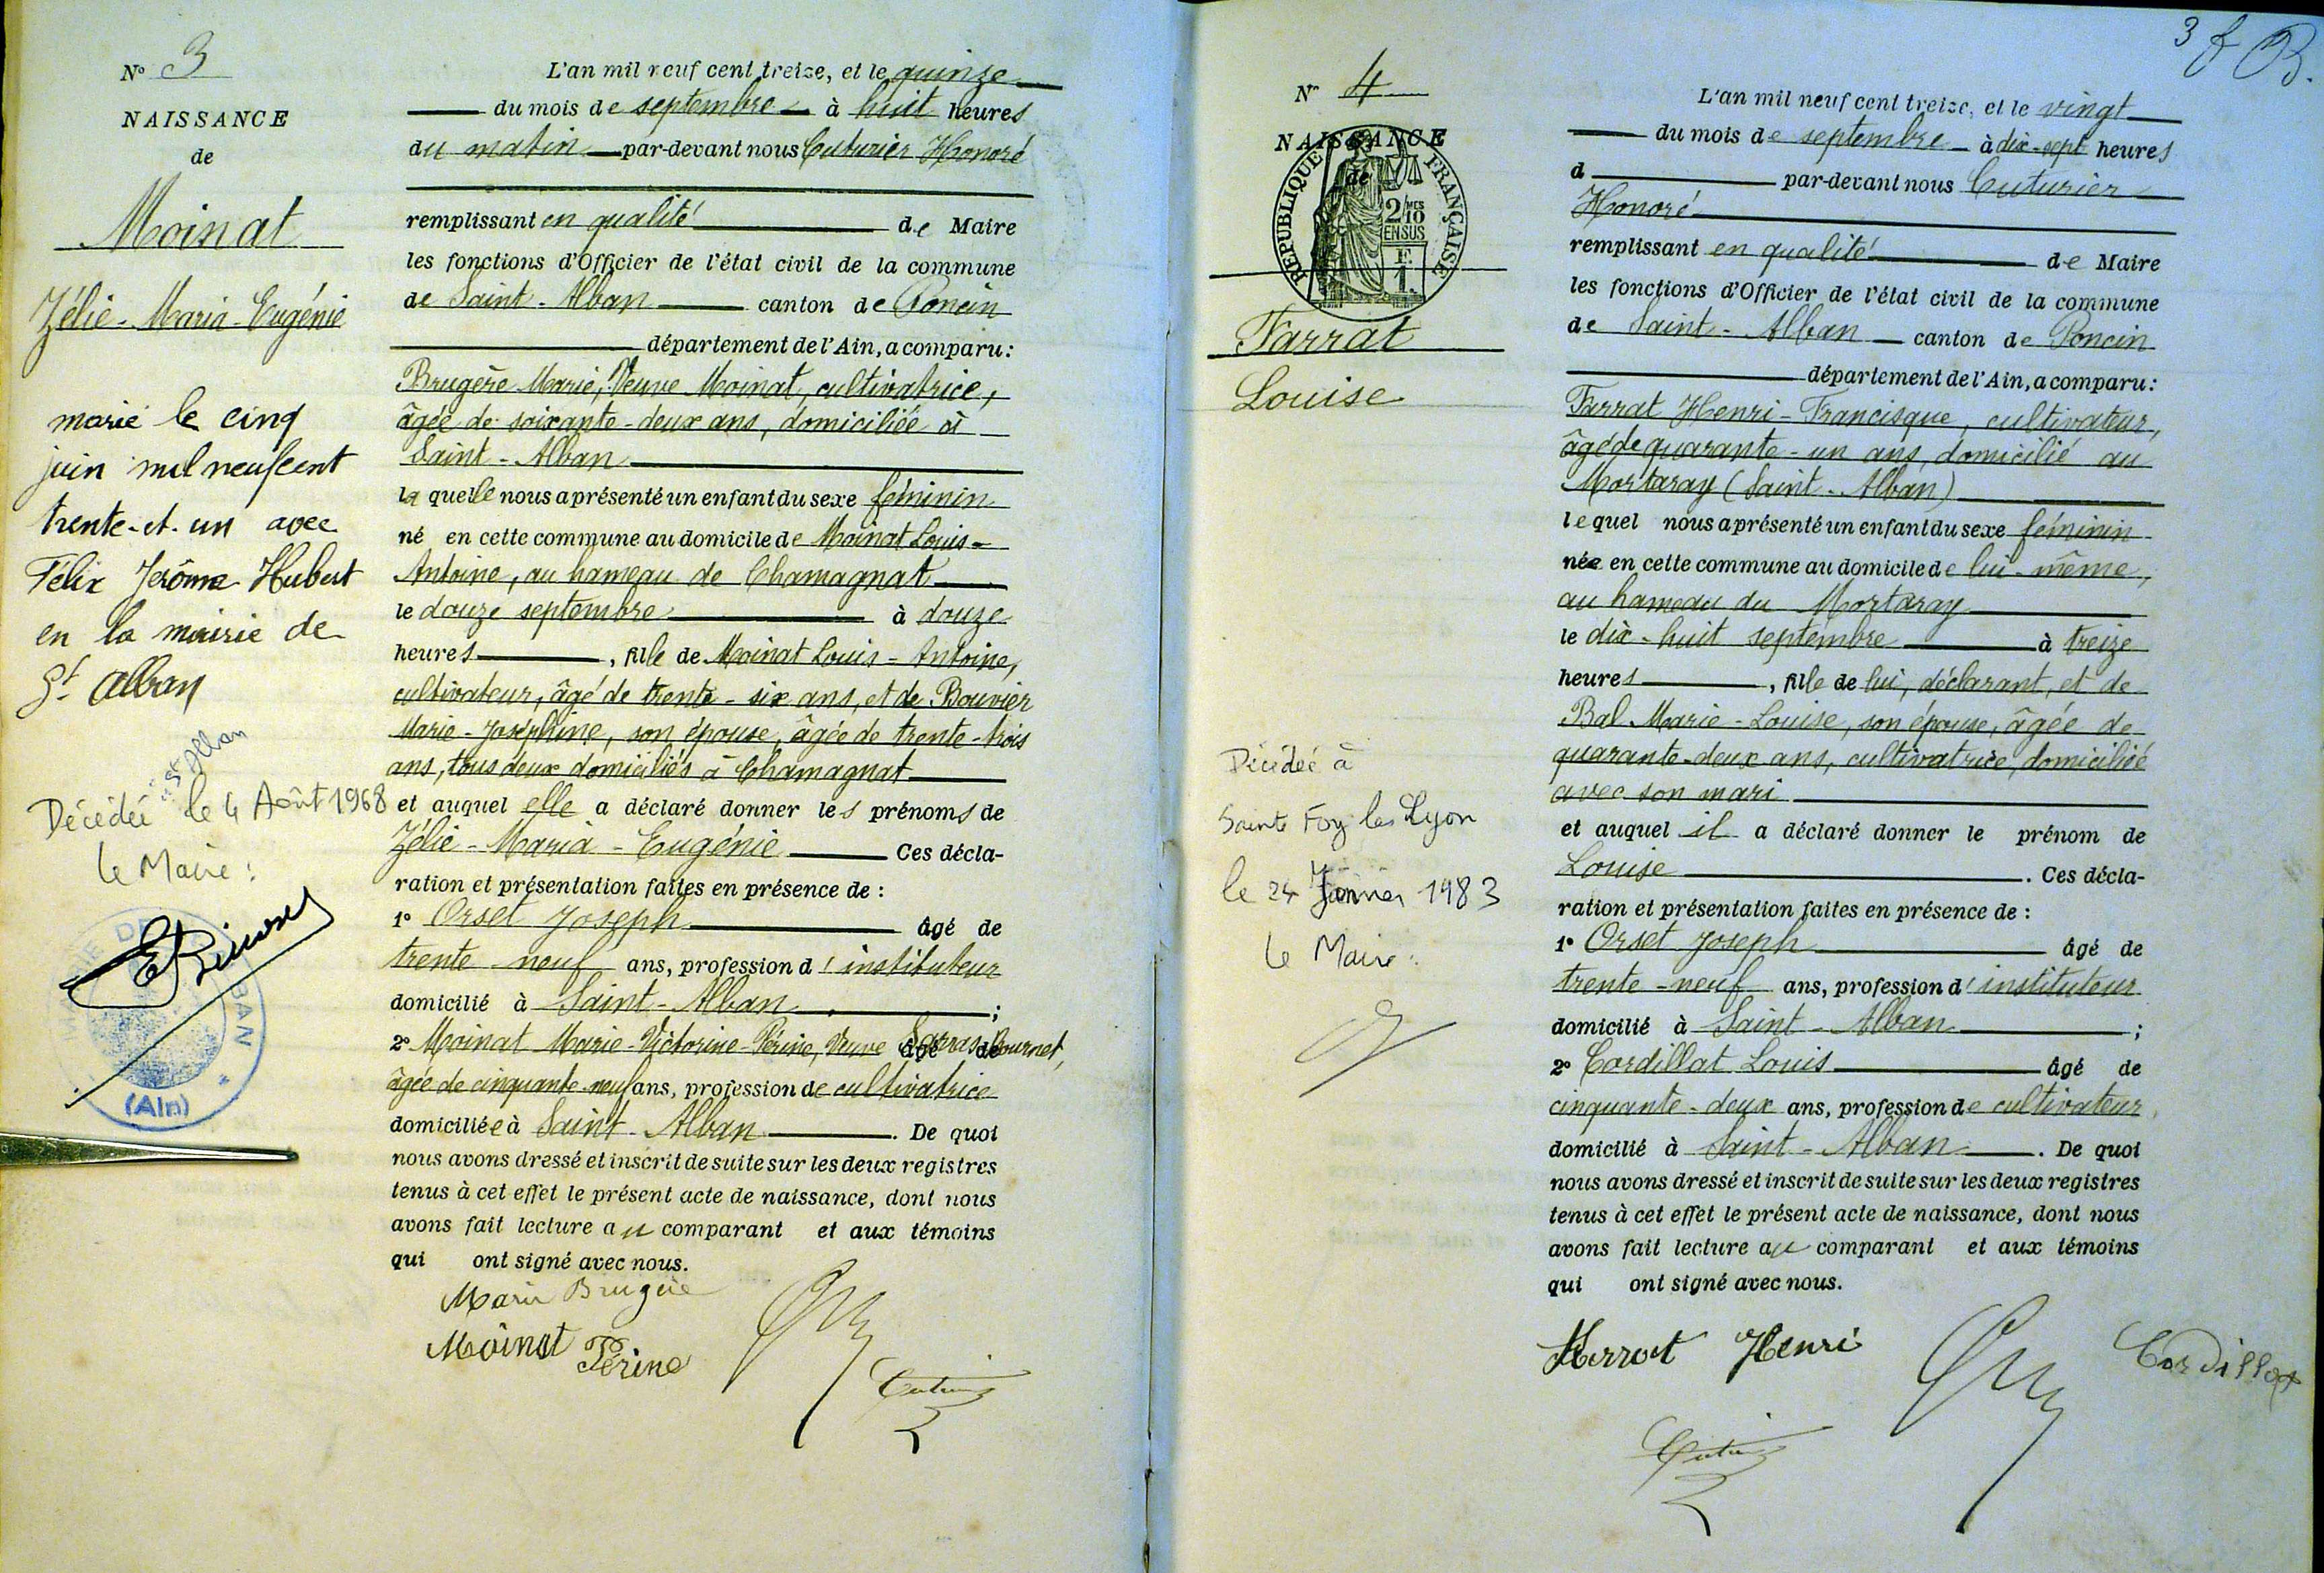 N° 3
NAISSANCE
de
Moinat
Zélie-Maria-Eugénie
marié le cinq
juin mil neuf cent
trente-et-un avec
Félix Jérôme Hubert
en la mairie de
St Alban
à St Alban
Décédée le 4 Août 1968
le Maire :
MAIRIE DE
BAN
(Ain)
L'an mil neuf cent treize, et le quinze
du mois de septembre à huit heures
du matin par-devant nous Cuturier Honoré
remplissant en qualité de Maire
les fonctions d'Officier de l'état civil de la commune
de Saint-Alban canton de Poncin
département de l'Ain, a comparu :
Brugère Marie, Veuve Moinat, cultivatrice,
âgée de soixante-deux ans, domiciliée à
Saint-Alban
la quelle nous a présenté un enfant du sexe féminin
né en cette commune au domicile de Moinat Louis-
Antoine, au hameau de Chamagnat
le douze septembre à douze
heures, fille de Moinat Louis-Antoine,
cultivateur, âgé de trente-six ans, et de Bouvier
Marie-Joséphine, son épouse, âgée de trente-trois
ans, tous deux domiciliés à Chamagnat
et auquel elle a déclaré donner les prénoms de
Zélie-Maria-Eugénie Ces décla-
ration et présentation faites en présence de :
1° Orset Joseph âgé de
trente-neuf ans, profession d'instituteur
domicilié à Saint-Alban ;
2° Moinat Marie-Victorine-Périne, Veuve âgé de Bournet,
âgée de cinquante-neuf ans, profession de cultivatrice
domiciliée à Saint-Alban. De quoi
nous avons dressé et inscrit de suite sur les deux registres
tenus à cet effet le présent acte de naissance, dont nous
avons fait lecture au comparant et aux témoins
qui ont signé avec nous.
Marie Brugère
Moinat Périne
Cuturier
3 f B.
N° 4
NAISSANCE
de
RÉPUBLIQUE FRANÇAISE
2/10 MES
EN SUS
F.
1.
Farrat
Louise
Décédée à
Sainte Foy les Lyon
le 24 Janvier 1983
le Maire :
L'an mil neuf cent treize, et le vingt
du mois de septembre à dix-sept heures
d par-devant nous Cuturier
Honoré
remplissant en qualité de Maire
les fonctions d'Officier de l'état civil de la commune
de Saint-Alban canton de Poncin
département de l'Ain, a comparu :
Farrat Henri-Francisque, cultivateur,
âgé de quarante-un ans, domicilié au
Mortaray (Saint-Alban)
lequel nous a présenté un enfant du sexe féminin
née en cette commune au domicile de lui-même,
au hameau du Mortaray
le dix-huit septembre à treize
heures, fille de lui, déclarant, et de
Bal Marie-Louise, son épouse, âgée de
quarante-deux ans, cultivatrice, domiciliée
avec son mari
et auquel il a déclaré donner le prénom de
Louise. Ces décla-
ration et présentation faites en présence de :
1° Orset Joseph âgé de
trente-neuf ans, profession d'instituteur
domicilié à Saint-Alban ;
2° Cordillat Louis âgé de
cinquante-deux ans, profession de cultivateur
domicilié à Saint-Alban. De quoi
nous avons dressé et inscrit de suite sur les deux registres
tenus à cet effet le présent acte de naissance, dont nous
avons fait lecture au comparant et aux témoins
qui ont signé avec nous.
Farrat Henri
Cordillat
Cuturier